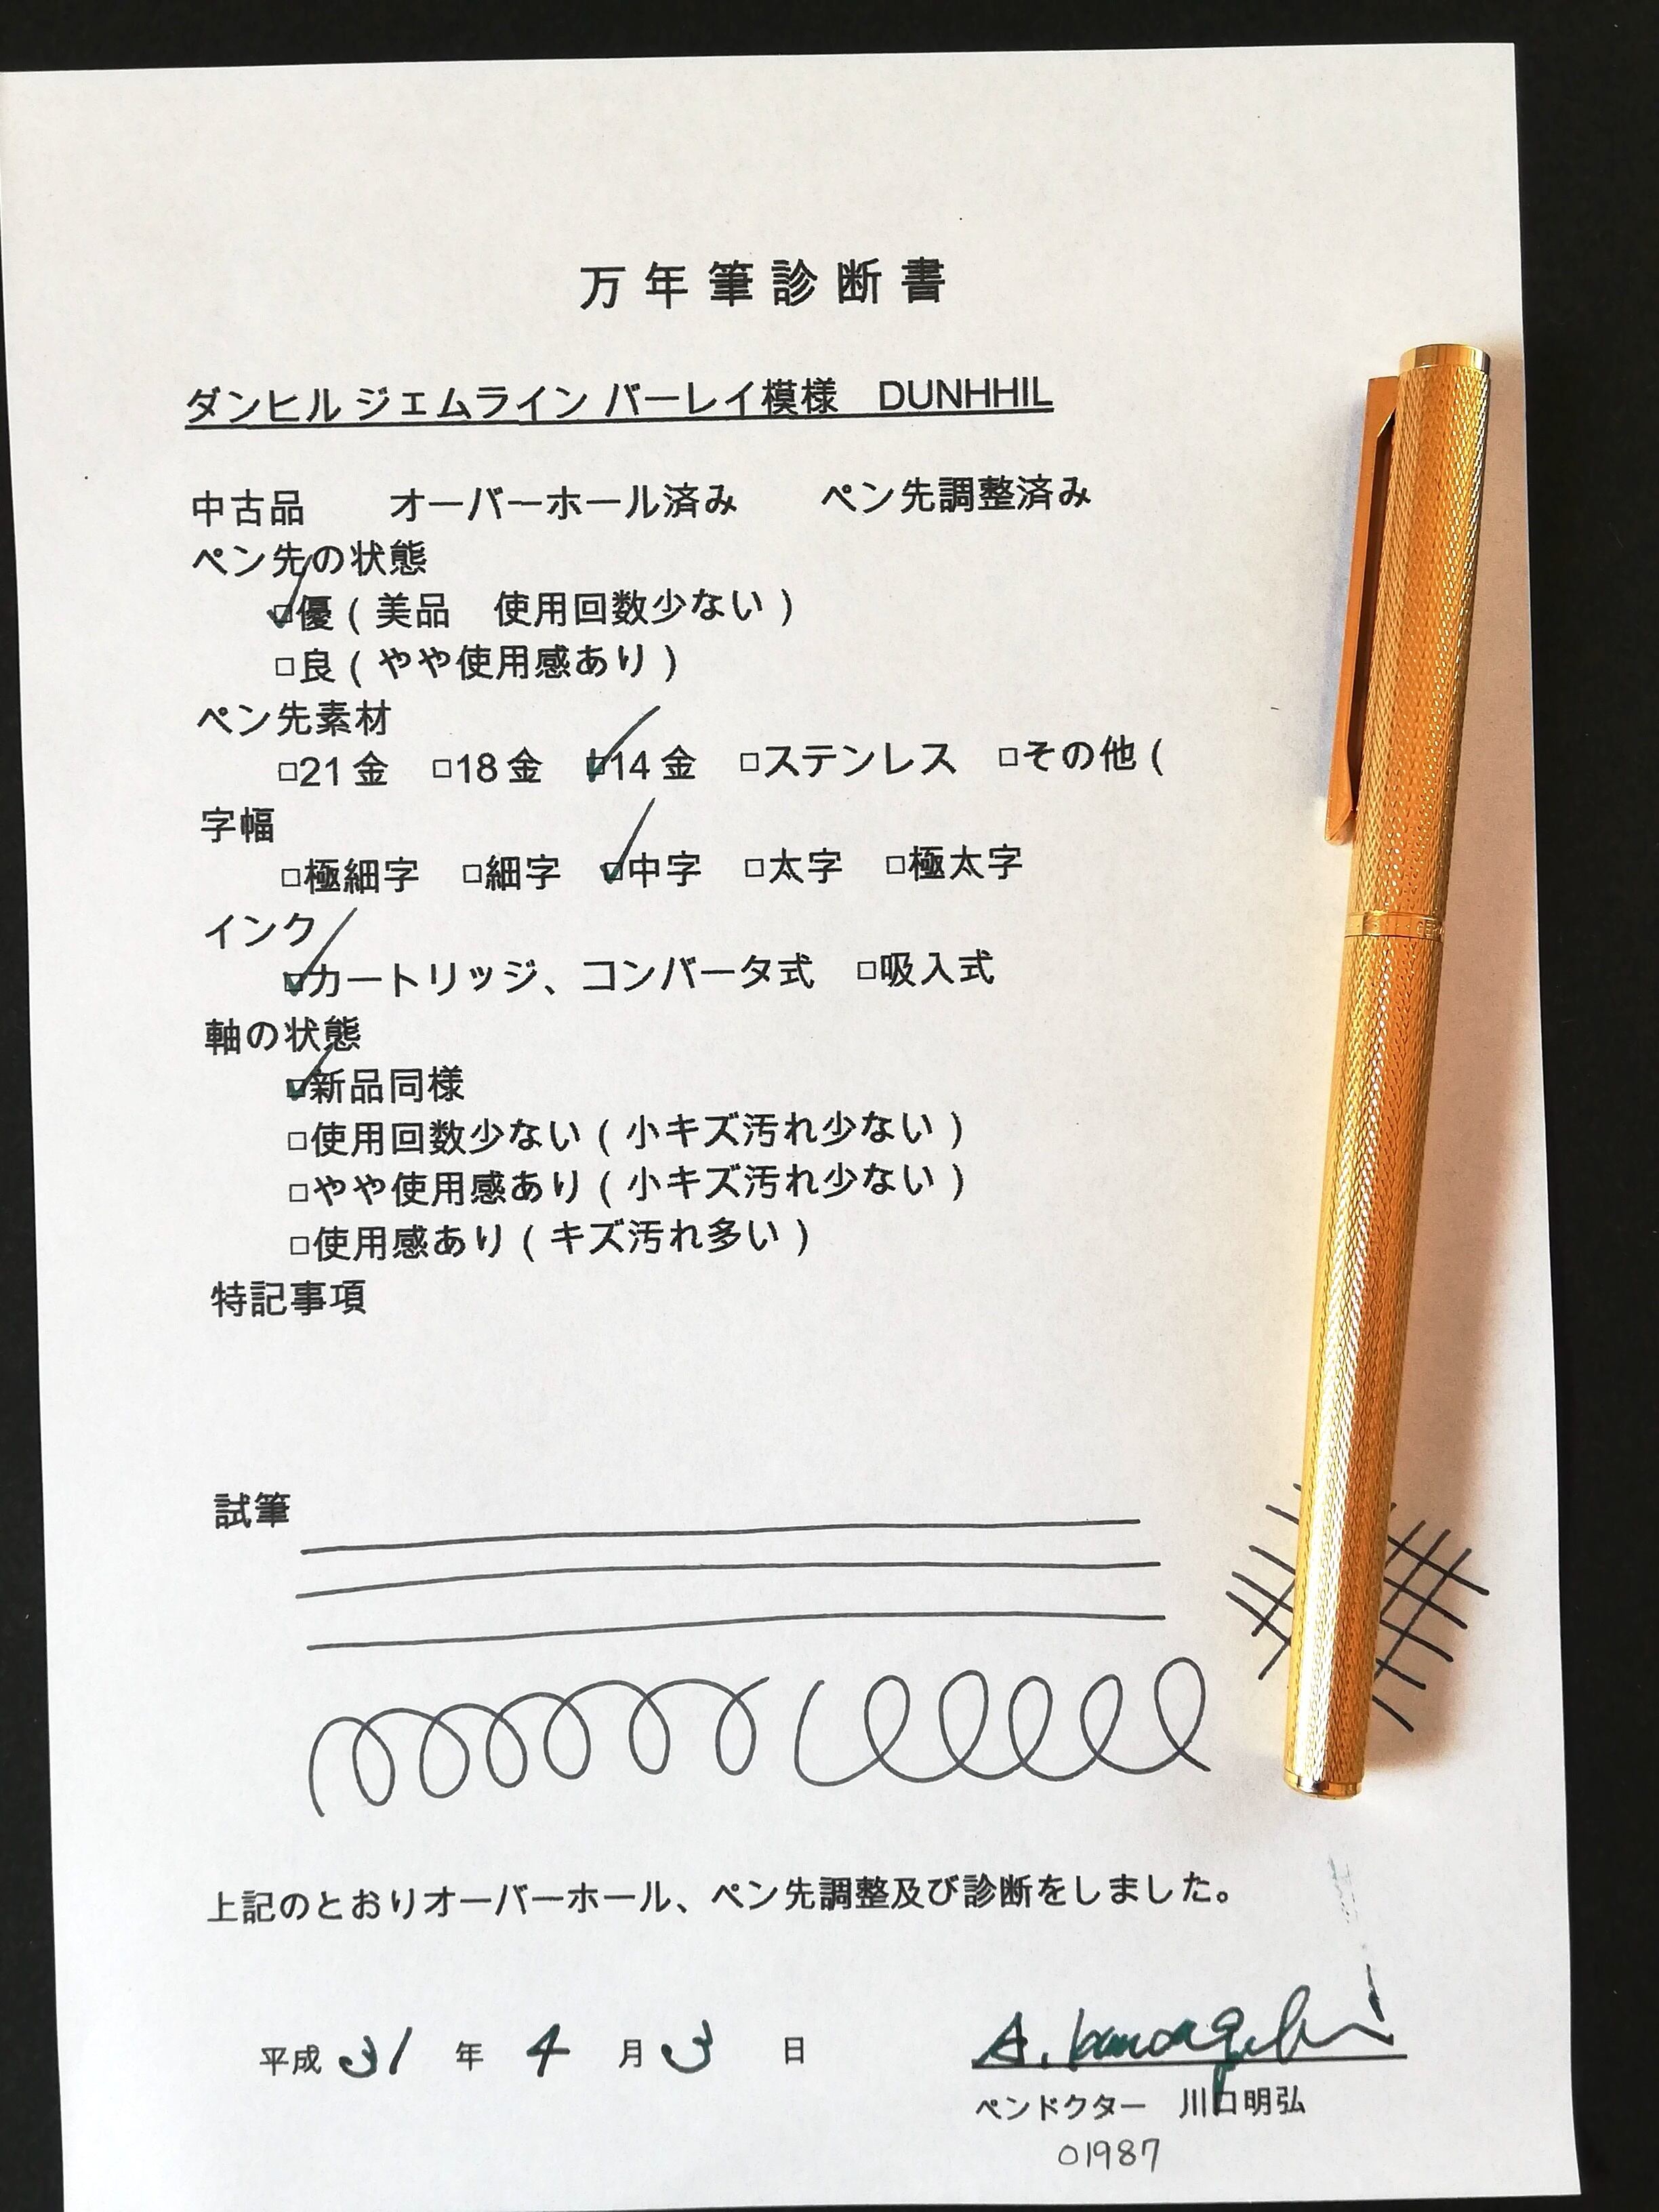 万年筆診断書
ダンヒル ジェムライン バーレイ模様　DUNHHIL
中古品　オーバーホール済み　ペン先調整済み
ペン先の状態
☑優（美品　使用回数少ない）
□良（やや使用感あり）
ペン先素材
□21金　□18金　☑14金　□ステンレス　□その他（
字幅
□極細字　□細字　☑中字　□太字　□極太字
インク
☑カートリッジ、コンバータ式　□吸入式
軸の状態
☑新品同様
□使用回数少ない（小キズ汚れ少ない）
□やや使用感あり（小キズ汚れ少ない）
□使用感あり（キズ汚れ多い）
特記事項
試筆
上記のとおりオーバーホール、ペン先調整及び診断をしました。
平成 31 年 4 月 3 日
A. Kawaguchi
ペンドクター　川口明弘
01987